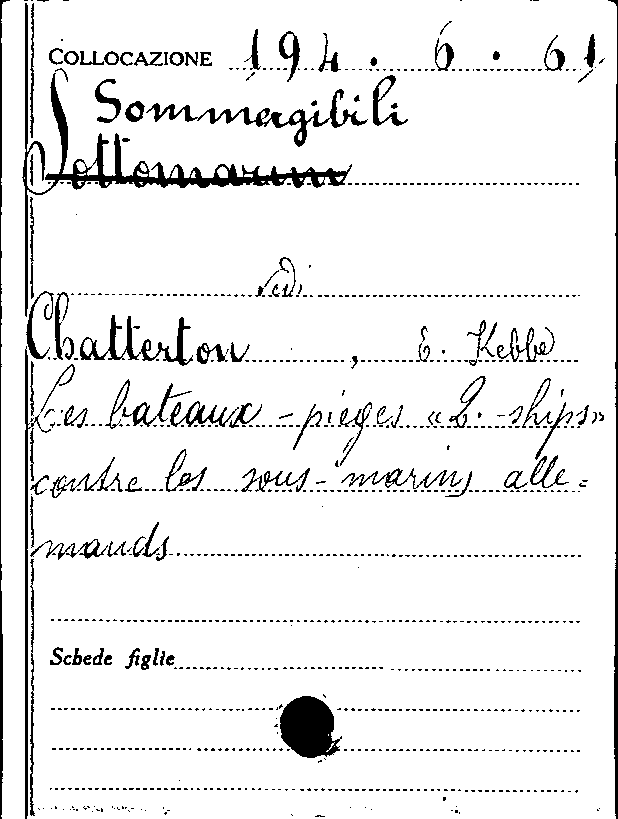 COLLOCAZIONE 194. 6. 61
Sommergibili
Sottomarini
vedi
Chatterton, E. Kebbe
Les bateaux-pieges «Q.-ships»
contre les sous-marins alle=
mands
Schede figlie